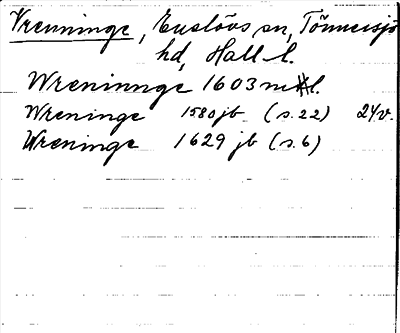 Vrenninge, Enslövs sn, Tönnersjö
hd, Hall l.
Wreninnge 1603 ml.
Wreninge 1580 jb (s. 22) 24v.
Wreninge 1629 jb (s. 6)